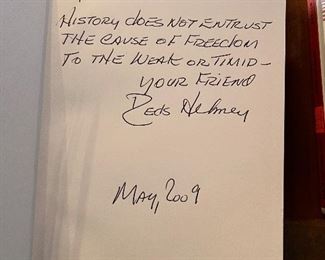 HISTORY DOES NOT ENTRUST
THE CAUSE OF FREEDOM
TO THE WEAK OR TIMID -
YOUR FRIEND
MAY, 2009